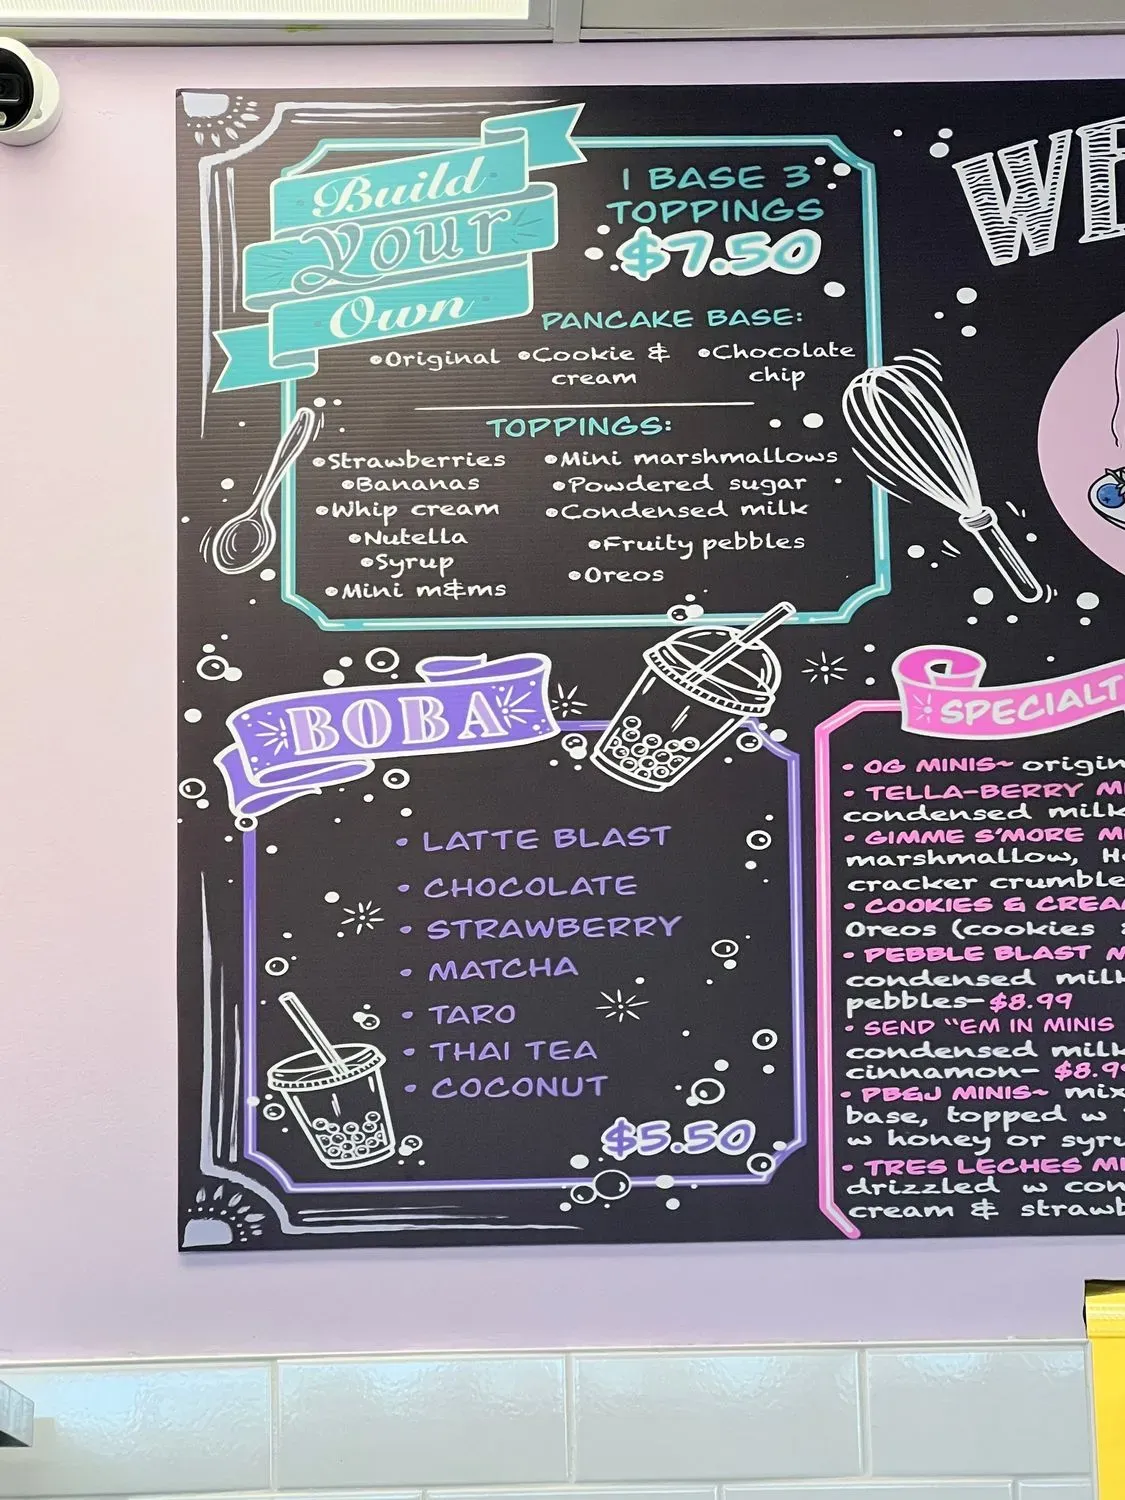 Build
Your
Own
1 BASE 3
TOPPINGS
$7.50
PANCAKE BASE:
•Original •Cookie & •Chocolate
cream chip
TOPPINGS:
•Strawberries
•Bananas
•Whip cream
•Nutella
•Syrup
•Mini m&ms
•Mini marshmallows
•Powdered sugar
•Condensed milk
•Fruity pebbles
•Oreos
BOBA
• LATTE BLAST
• CHOCOLATE
• STRAWBERRY
• MATCHA
• TARO
• THAI TEA
• COCONUT
$5.50
WE
SPECIALT
• OG MINIS~ origin
• TELLA-BERRY M
condensed milk
• GIMME S'MORE M
marshmallow, H
cracker crumble
• COOKIES & CREA
Oreos (cookies
• PEBBLE BLAST M
condensed milk
pebbles- $8.99
• SEND "EM IN MINIS
condensed milk
cinnamon- $8.9
• PB&J MINIS~ mix
base, topped w
w honey or syru
• TRES LECHES MI
drizzled w con
cream & strawb